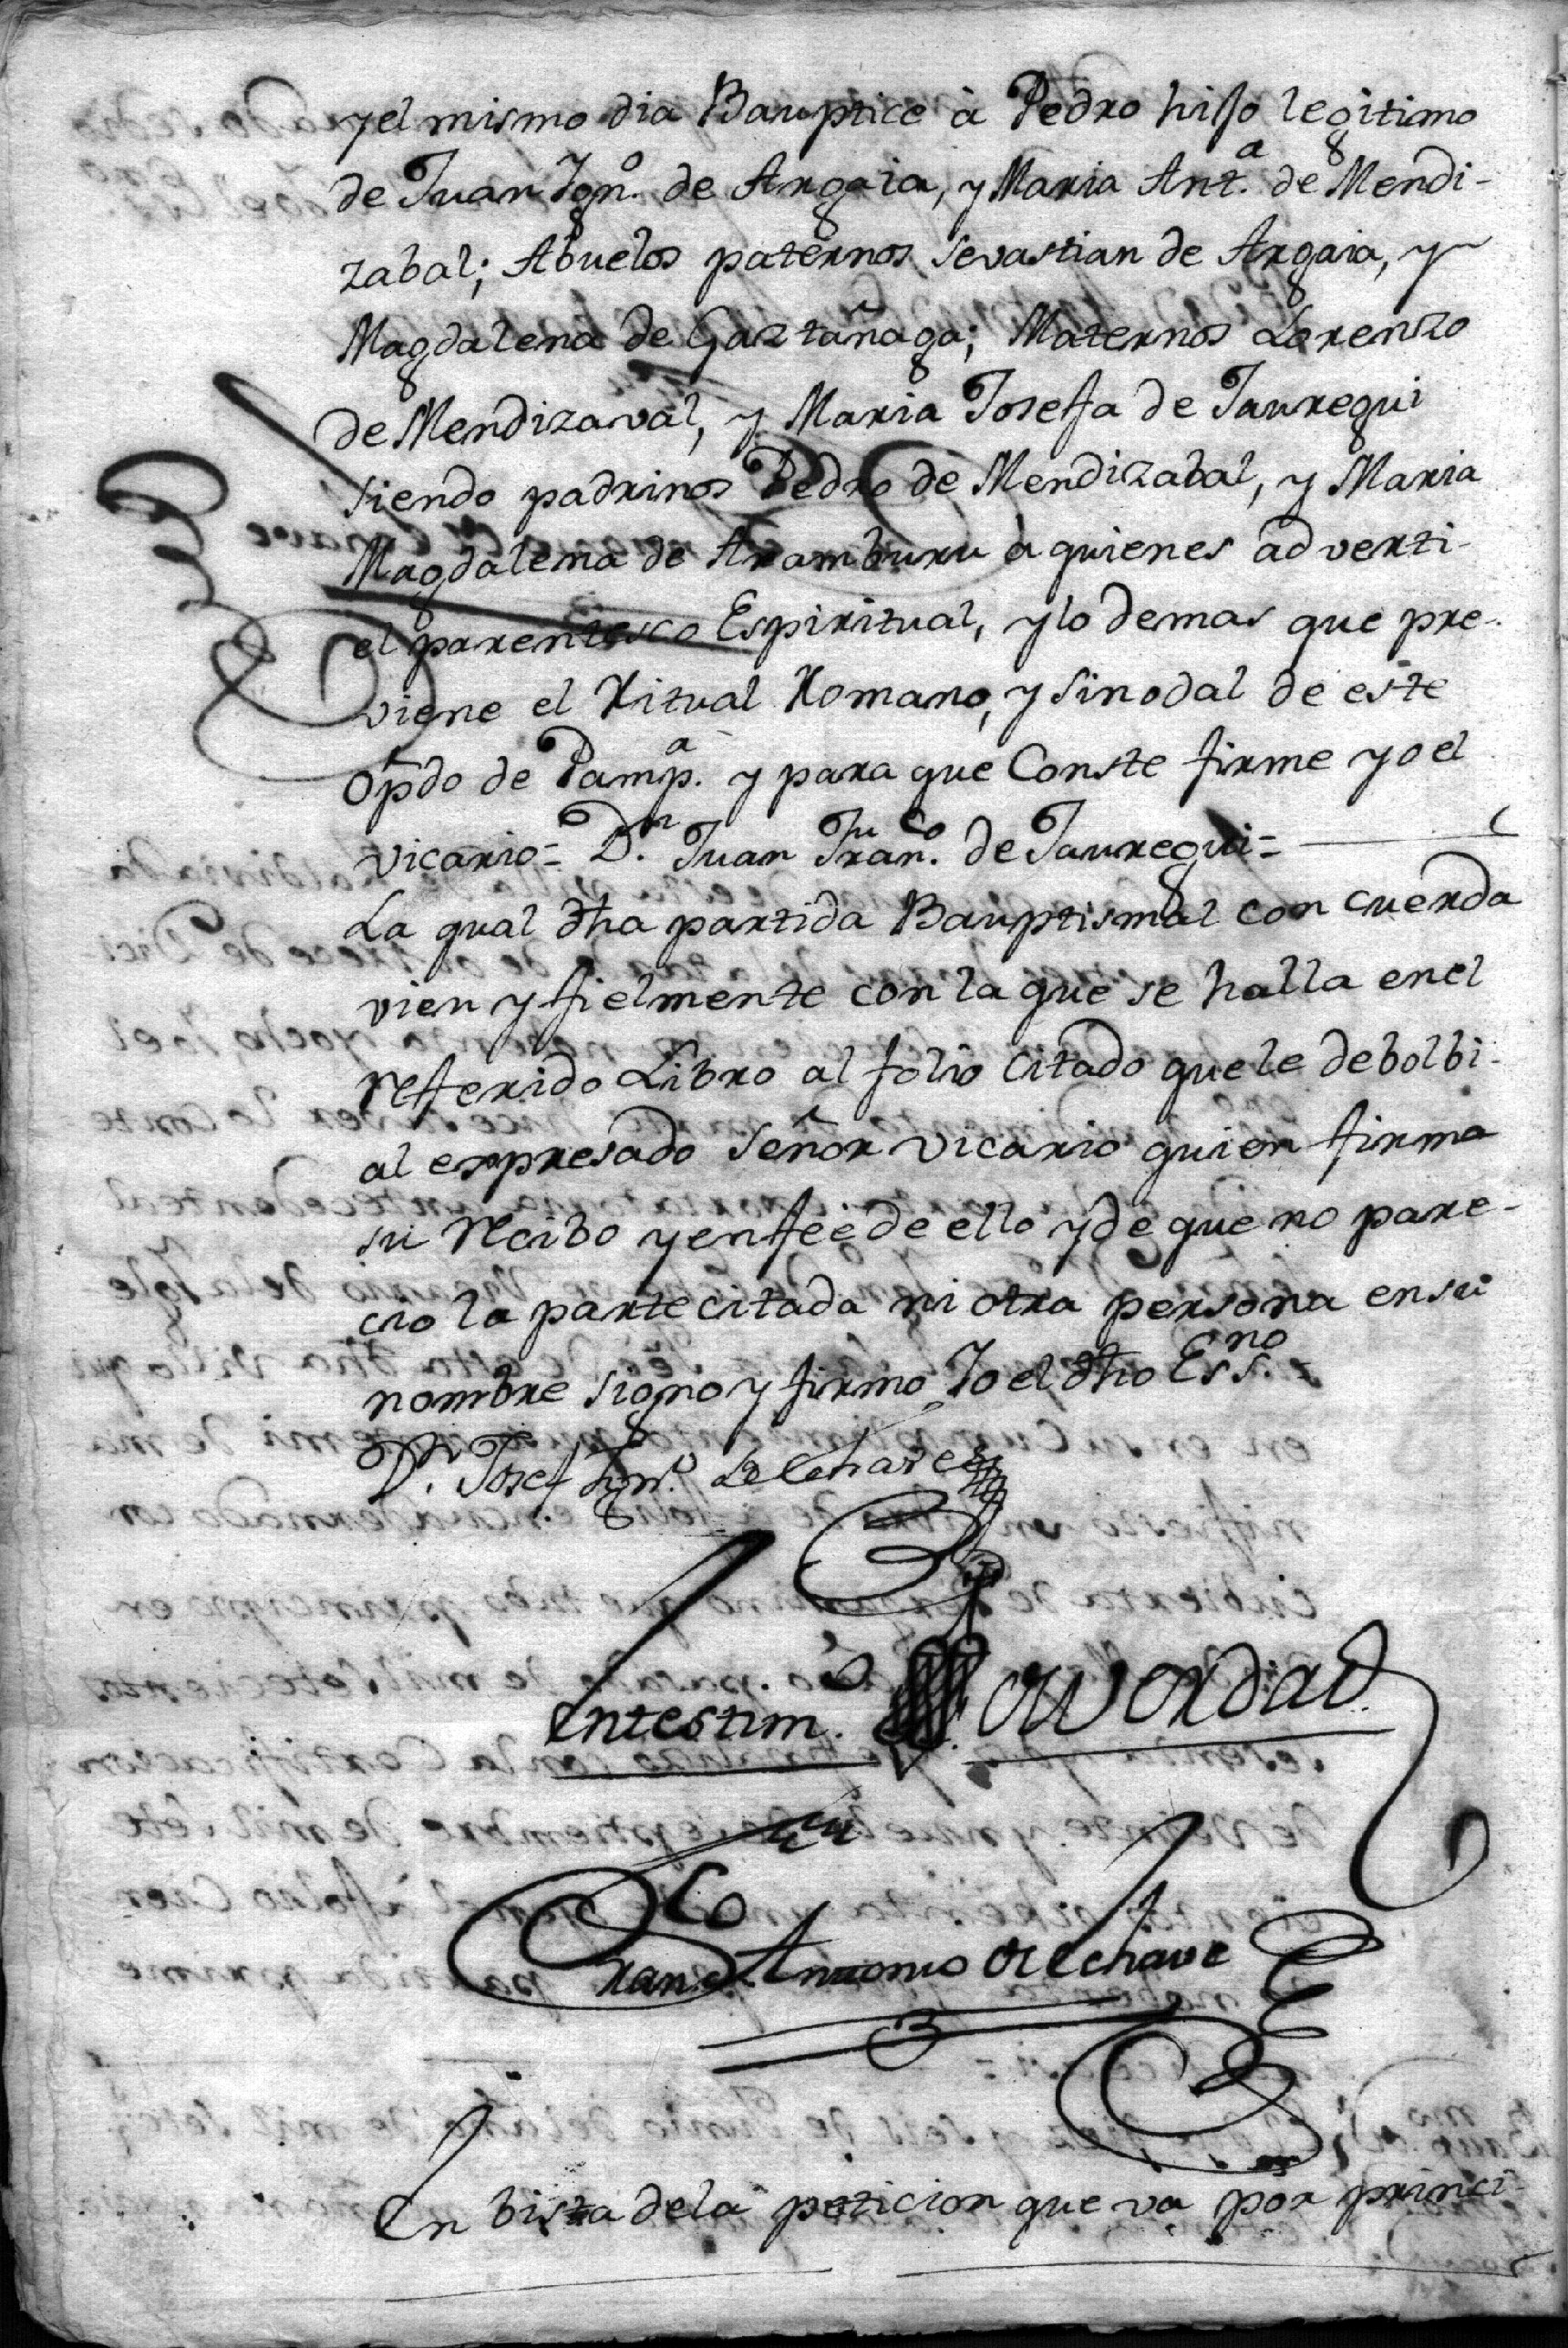 y el mismo dia Bauptice à Pedro hijo legitimo
de Juan Ign.º de Argaia, y Maria Ant.ª de Mendi-
zabal; Abuelos paternos Sevastian de Argaia, y
Magdalena de Gaztañaga; Maternos Lorenzo
de Mendizaval, y Maria Josefa de Jauregui
siendo padrinos Pedro de Mendizabal, y Maria
Magdalena de Aramburu à quienes adverti-
el parentesco Espiritual, y lo demas que pre-
viene el Ritual Romano, y Sinodal de este
Opdo de Pamp.ª y para que Conste firme yo el
vicario = D.n Juan Fran.co de Jauregui =
La qual dha partida Bauptismal concuerda
vien y fielmente con la que se halla en el
refferido Libro al folio citado que le debolbi-
al expresado Señor vicario quien firma
su recibo y en feè de ello y de que no pare-
cio la parte citada ni otra persona en su
nombre signo y firmo Yo el dho Ess.no =
D.n Josef Ign.º de Echave
En testim.º de verdad
Fran.co Antonio de Echave
En bista de la peticion que va por princi-